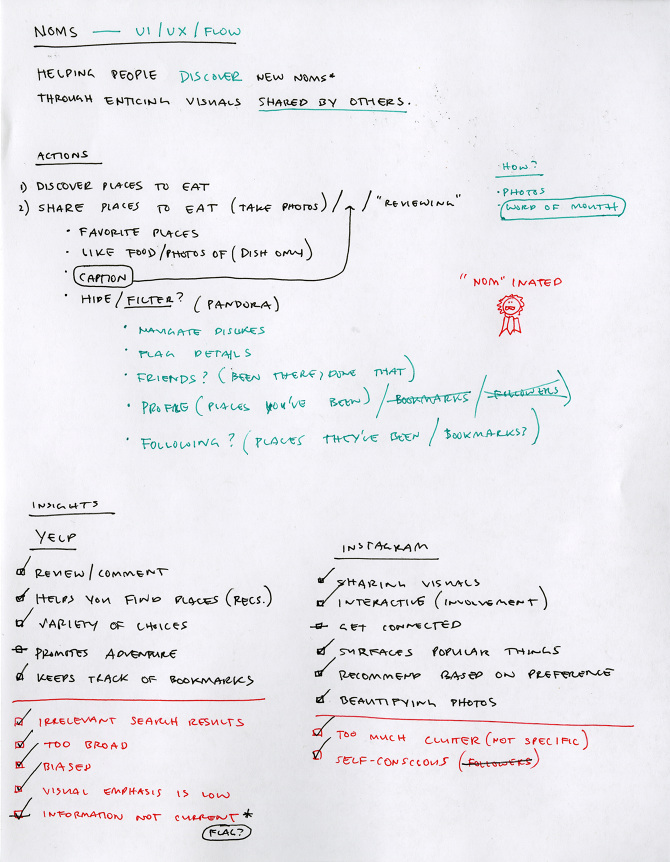 NOMS — UI/UX/FLOW
HELPING PEOPLE DISCOVER NEW NOMS*
THROUGH ENTICING VISUALS SHARED BY OTHERS.
ACTIONS
1) DISCOVER PLACES TO EAT
2) SHARE PLACES TO EAT (TAKE PHOTOS) / / "REVIEWING"
• FAVORITE PLACES
• LIKE FOOD/PHOTOS OF (DISH ONLY)
• CAPTION
• HIDE/FILTER? (PANDORA)
• NAVIGATE DISLIKES
• FLAG DETAILS
• FRIENDS? (BEEN THERE, DONE THAT)
• PROFILE (PLACES YOU'VE BEEN) / BOOKMARKS / FOLLOWERS)
• FOLLOWING? (PLACES THEY'VE BEEN / BOOKMARKS?)
HOW?
• PHOTOS
• WORD OF MOUTH
"NOM" INATED
INSIGHTS
YELP
REVIEW/COMMENT
HELPS YOU FIND PLACES (RECS.)
VARIETY OF CHOICES
PROMOTES ADVENTURE
KEEPS TRACK OF BOOKMARKS
IRRELEVANT SEARCH RESULTS
TOO BROAD
BIASED
VISUAL EMPHASIS IS LOW
INFORMATION NOT CURRENT *
FLAG?
INSTAGRAM
SHARING VISUALS
INTERACTIVE (INVOLVEMENT)
GET CONNECTED
SURFACES POPULAR THINGS
RECOMMEND BASED ON PREFERENCE
BEAUTIFYING PHOTOS
TOO MUCH CLUTTER (NOT SPECIFIC)
SELF-CONSCIOUS (FOLLOWERS)